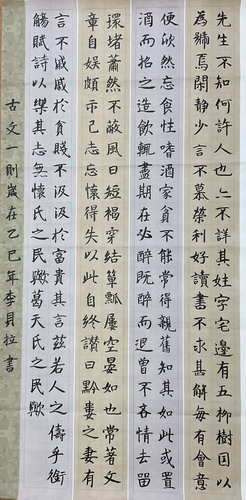 先生不知何許人也亦不詳其姓字宅邊有五柳樹因以
為號焉閑靜少言不慕榮利好讀書不求甚解每有會意
便欣然忘食性嗜酒家貧不能常得親舊知其如此或置
酒而招之造飲輒盡期在必醉既醉而退曾不吝情去留
環堵蕭然不蔽風日短褐穿結簞瓢屢空晏如也常著文
章自娛頗示己志忘懷得失以此自終讚曰黔婁之妻有
言不戚戚於貧賤不汲汲於富貴其言茲若人之儔乎銜
觴賦詩以樂其志無懷氏之民歟葛天氏之民歟
古文一則歲在乙巳年李貝拉書